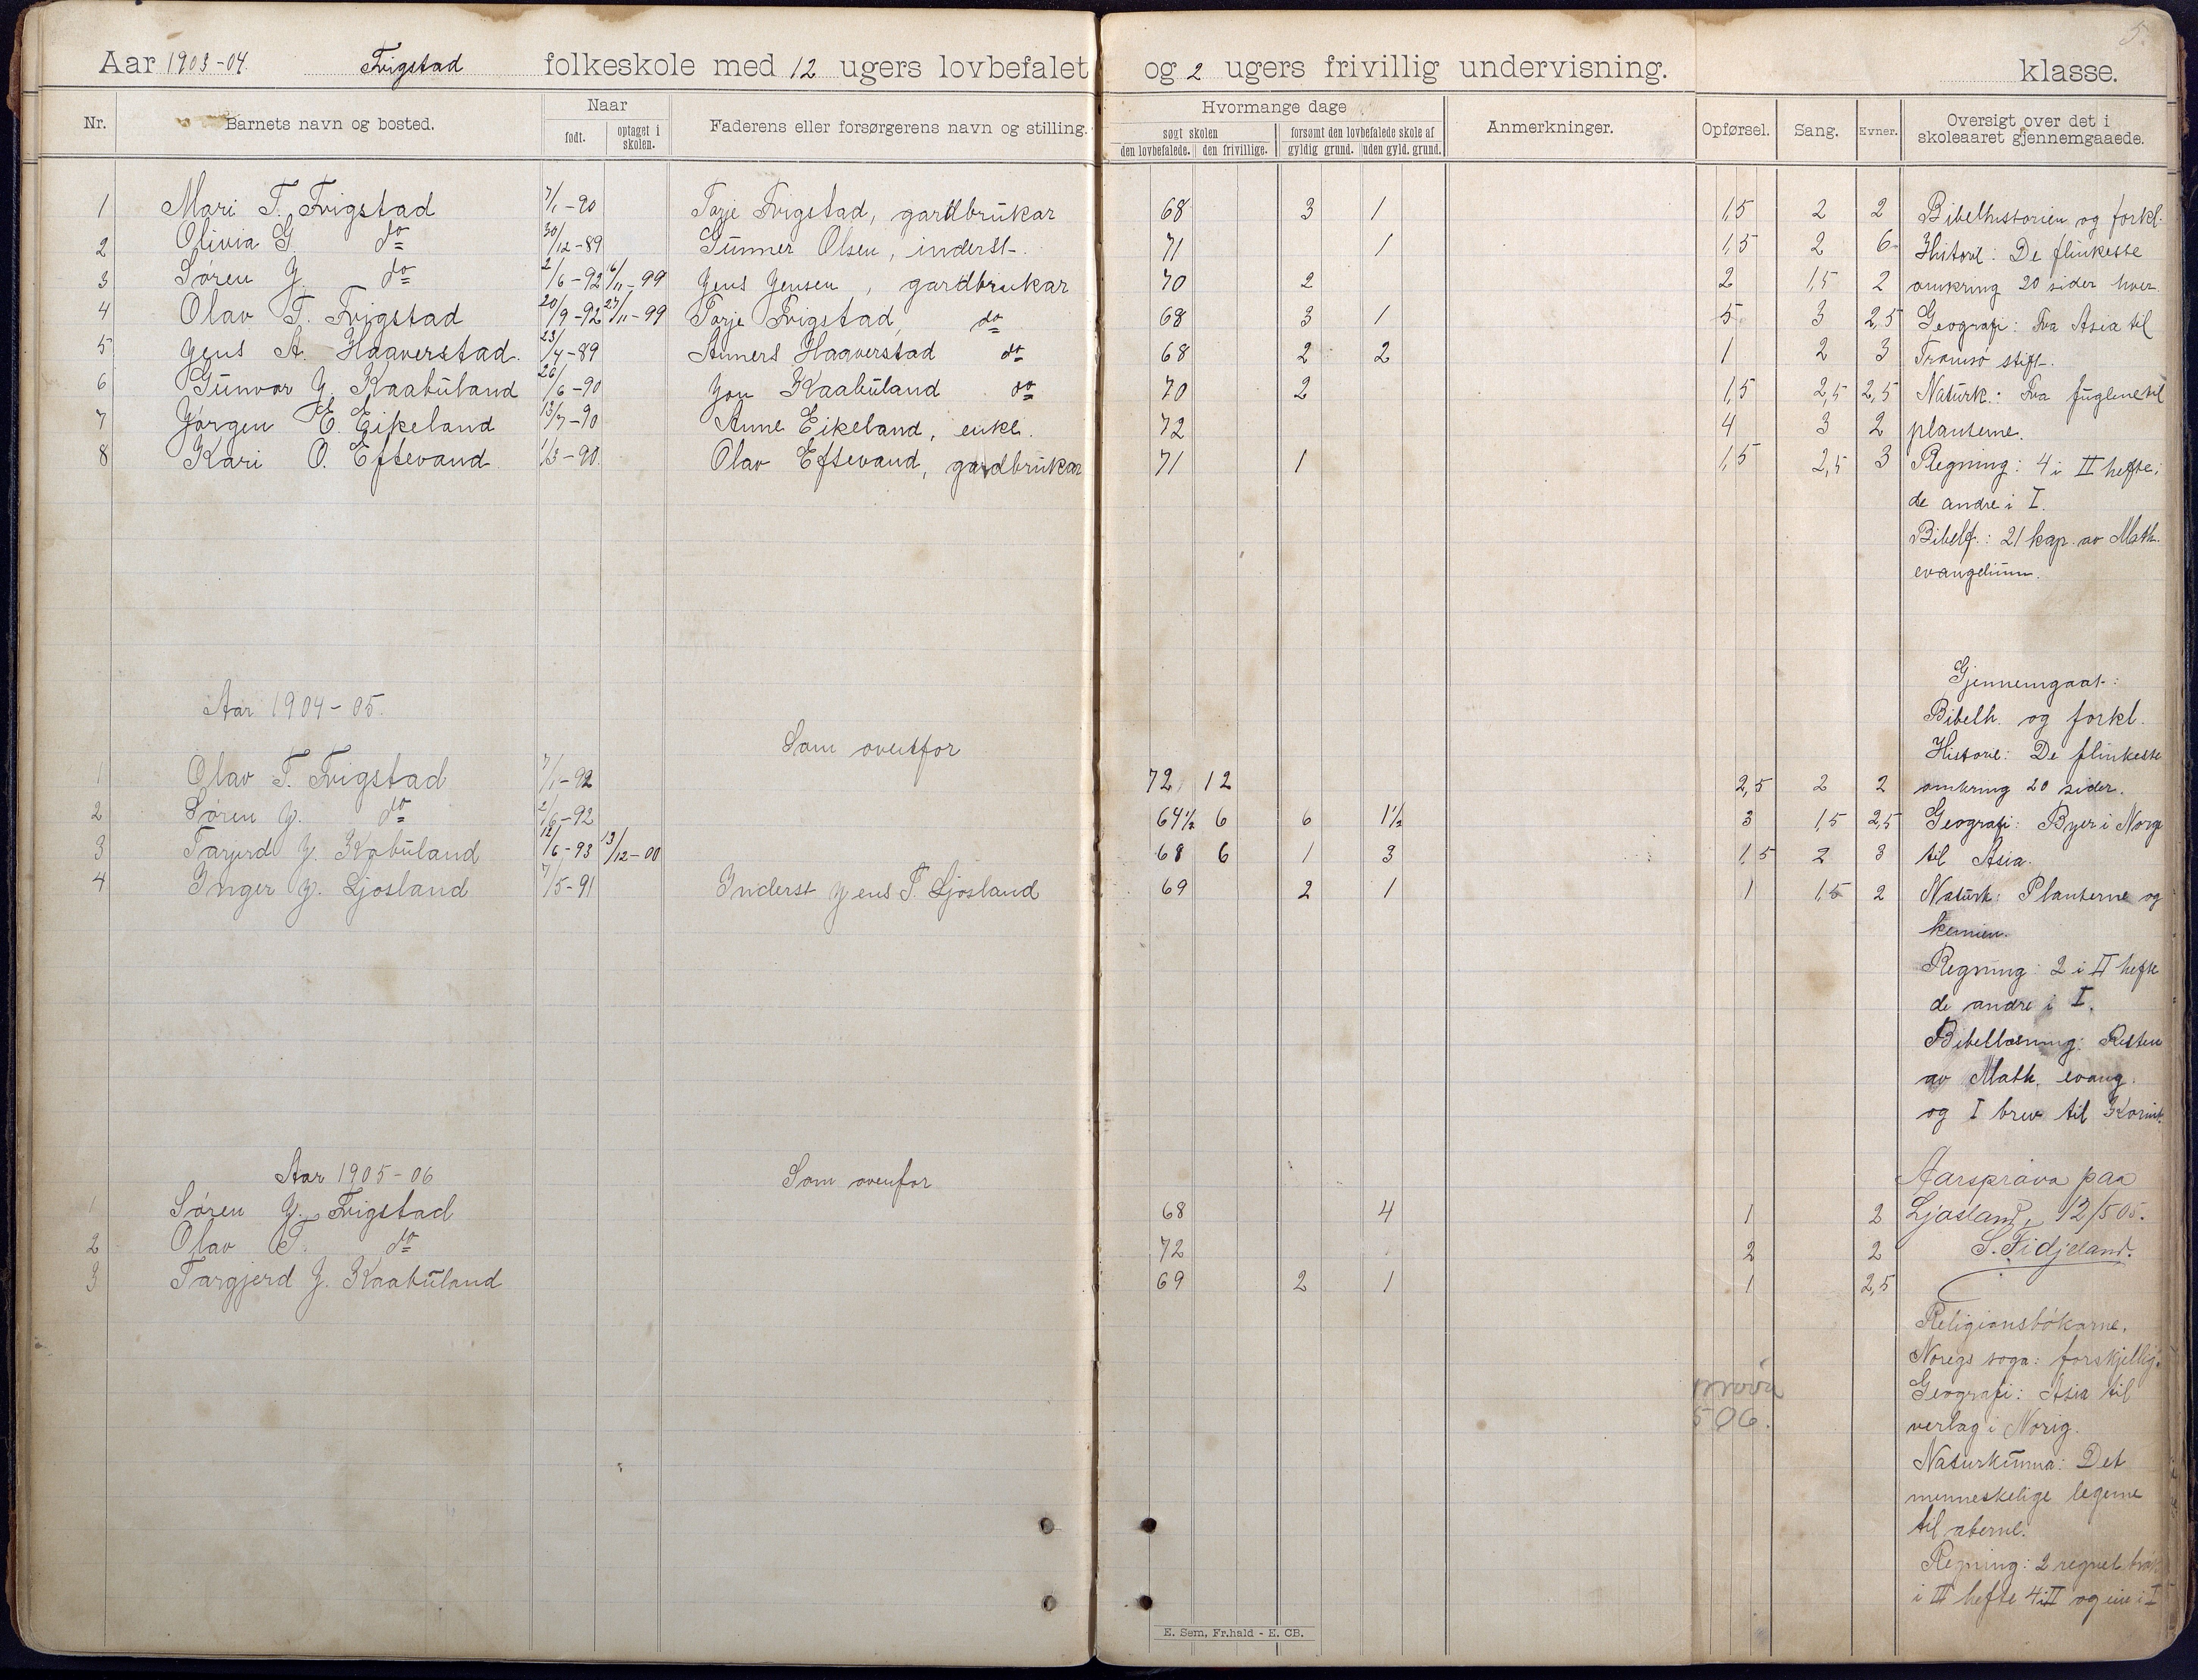 5.
Aar 1903-04. Frigstad folkeskole med 12 ugers lovbefalet og 2 ugers frivillig undervisning. klasse.
Nr. Barnets navn og bosted. Naar født. optaget i skolen. Faderens eller forsørgerens navn og stilling. Hvormange dage søgt skolen den lovbefalede. den frivillige. forsømt den lovbefalede skole af gyldig grund. uden gyld. grund. Anmerkninger. Opførsel. Sang. Evner. Oversigt over det i skoleaaret gjennemgaaede.
1 Mari T. Frigstad 7/1-90 Torje Frigstad, gardbrukar 68 3 1 1,5 2 2 Bibelhistorien og forkl.
2 Olivia G. do 30/12-89 Gunner Olsen, inderst. 71 1 1,5 2 6 Historie: De flinkeste
3 Søren J. do 2/6-92 6/11-99 Jens Jensen, gardbrukar 70 2 2 1,5 2 omkring 20 sider hver.
4 Olav T. Frigstad 20/9-92 27/11-99 Torje Frigstad, do 68 3 1 5 3 2,5 Geografi: Fra Asia til
5 Jens A. Haaverstad. 23/4-89 Anners Haaverstad do 68 2 2 1 2 3 Tromsø stift.
6 Gunvor J. Kaabuland 26/6-90 Jon Kaabuland do 70 2 1,5 2,5 2,5 Naturk.: Fra fuglene til
7 Jørgen E. Eikeland 13/7-90 Anne Eikeland, enke. 72 4 3 2 planterne.
8 Kari O. Eftevand 1/3-90. Olav Eftevand, gardbrukar 71 1 1,5 2,5 3 Regning: 4 i II hefte;
de andre i I.
Bibelf.: 21 kap. av Math.
evangelium.
Gjennemgaat:
Aar 1904-05. Bibelh. og forkl.
Som ovenfor Historie: De flinkeste
1 Olav T. Frigstad 7/1-92 72 12 2,5 2 2 omkring 20 sider.
2 Søren J. do 2/6-92 64½ 6 6 1½ 3 1,5 2,5 Geografi: Byer i Norge
3 Tarjerd J. Kabuland 12/6-93 13/12-00 68 6 1 3 1,5 2 3 til Asia.
4 Inger J. Ljosland 7/5-91 Inderst Jens T. Ljosland 69 2 1 1 1,5 2 Naturk: Planterne og
kemien.
Regning: 2 i II hefte
de andre i I.
Bibellæsning: Resten
av Math. evang.
og I brev til Korint.
Aar 1905-06 Som ovenfor Aarsprøva paa
1 Søren J. Frigstad 68 4 1 2 Ljosland, 12/5 05.
2 Olav T. do 72 2 2 S. Fidjeland.
3 Targjerd J. Kaabuland 69 2 1 1 2,5
Religionsbøkarne.
Noregs soga: forskjellig.
Geografi: Asia til
506.
verlag i Norig.
Naturkunna: Det
menneskelige legeme
til aberne.
Regning: 2 regnet
i III hefte 4 i II og ein i I
E. Sem, Fr.hald - E. CB.